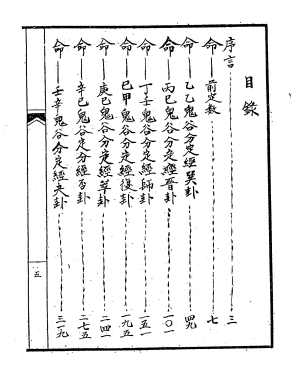 目錄
序言 三
命 前定数 七
命 乙乙鬼谷分定經巽卦 四九
命 丙巳鬼谷分定經晉卦 一〇一
命 丁壬鬼谷分定經師卦 一五一
命 已甲鬼谷分定經復卦 一九五
命 庚巳鬼谷分定經萃卦 二四一
命 辛巳鬼谷定分經否卦 二七五
命 壬辛鬼谷分定經夬卦 三一九
五